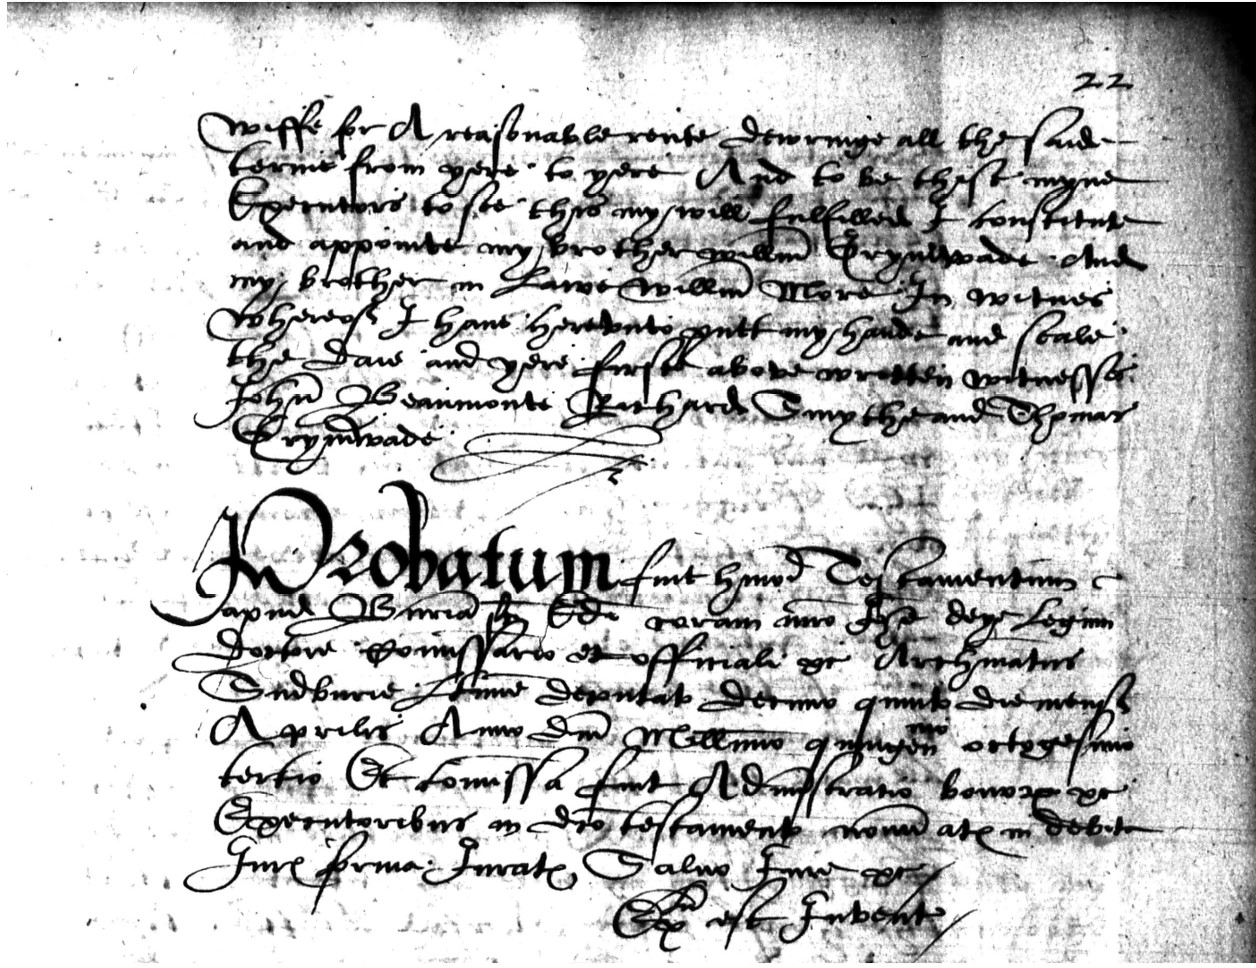 22
wiffe for A reasonable rente dewringe all the said
terme from yere to yere And to be thest myne
Executors to see this my will fulfilled I constitute
and appointe my brother willm Grymwade And
my brother in Lawe willm More In witnes
whereof I have herevnto putt my hande and seale
the daie and yere first above wrotten witnesses
John Beaumonte Richarde Smythe and Thomas
Grymwade
Probatum fuit hmod Testamentum
apud Burie sci Edi coram mro deye Legum
doctore Comissario et officiali &c Archinatus
Sudburie ltime deputat decimo quinto die mensis
Aprilis Anno dni Millimo quingen mo octogesimo
tertio Et comissa fuit Administratio bonor &c
Executoribus in dco testamento noiat in debita
Iur forma Iurat Salvo Iure &c
Ex est Invent